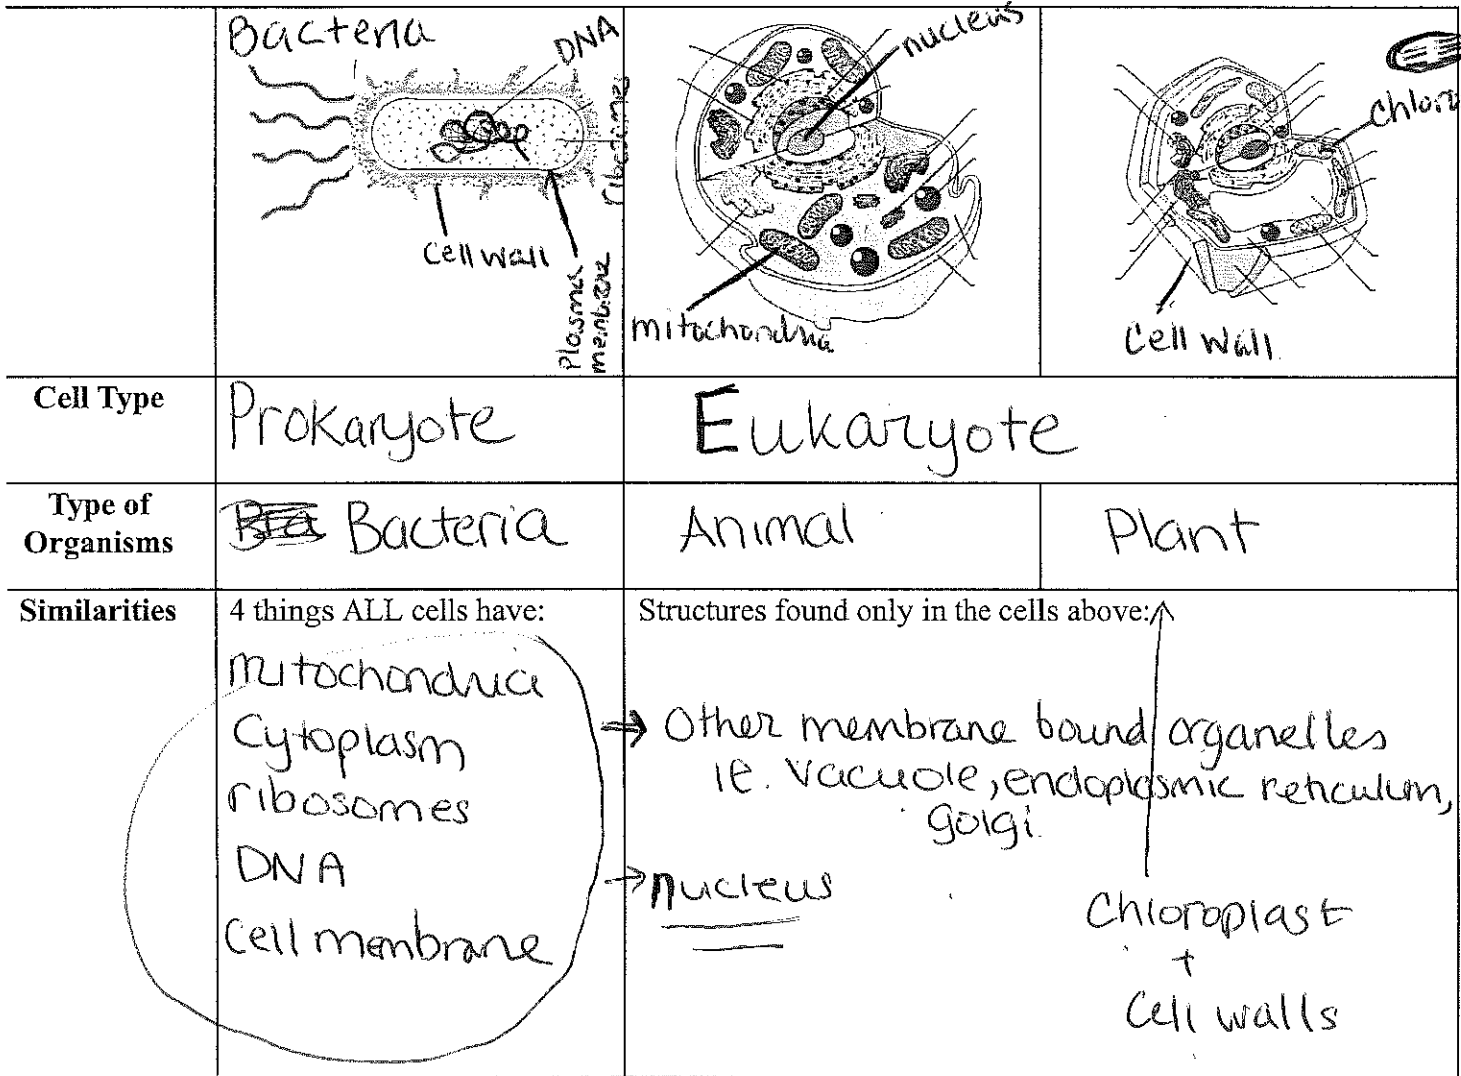 Bacteria
DNA
ribosome
Cell wall
Plasma
membrane
nucleus
mitochondria
chloro
Cell Wall
Cell Type
Prokaryote
Eukaryote
Type of
Organisms
Bacteria
Animal
Plant
Similarities
4 things ALL cells have:
mitochondria
Cytoplasm
ribosomes
DNA
Cell membrane
Structures found only in the cells above:
→ Other membrane bound organelles
ie. Vacuole, endoplasmic reticulum,
golgi.
→ nucleus
Chloroplast
+
Cell walls